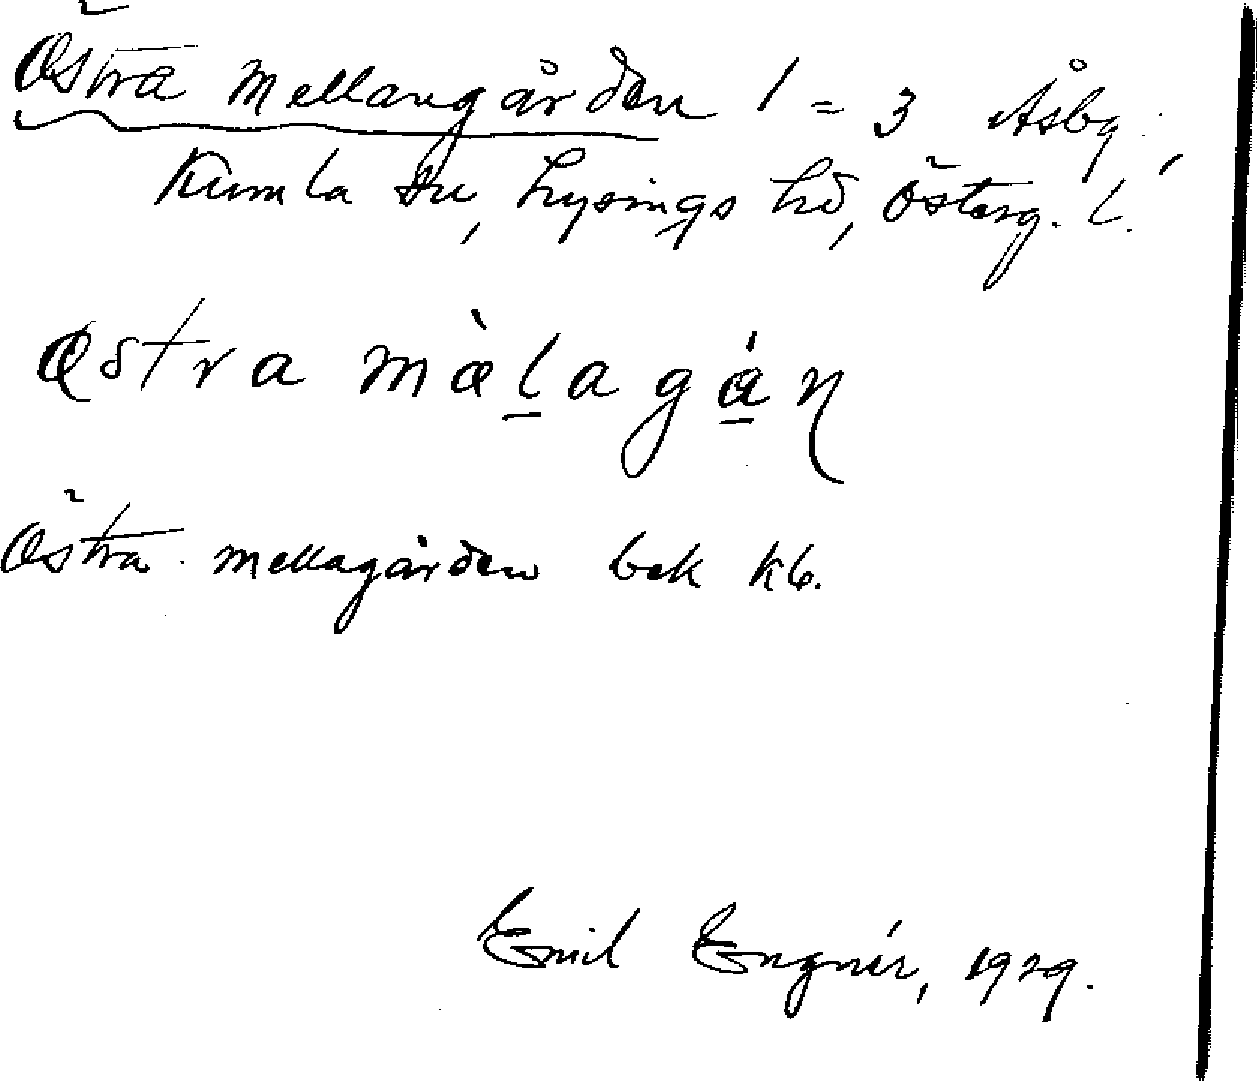 Östra Mellangården 1-3 Åsby,
Kumla sn, Lysings hd, Österg. l.
östra mæ̀lagán
Östra mellagården bek kb.
Emil Engnér, 1929.